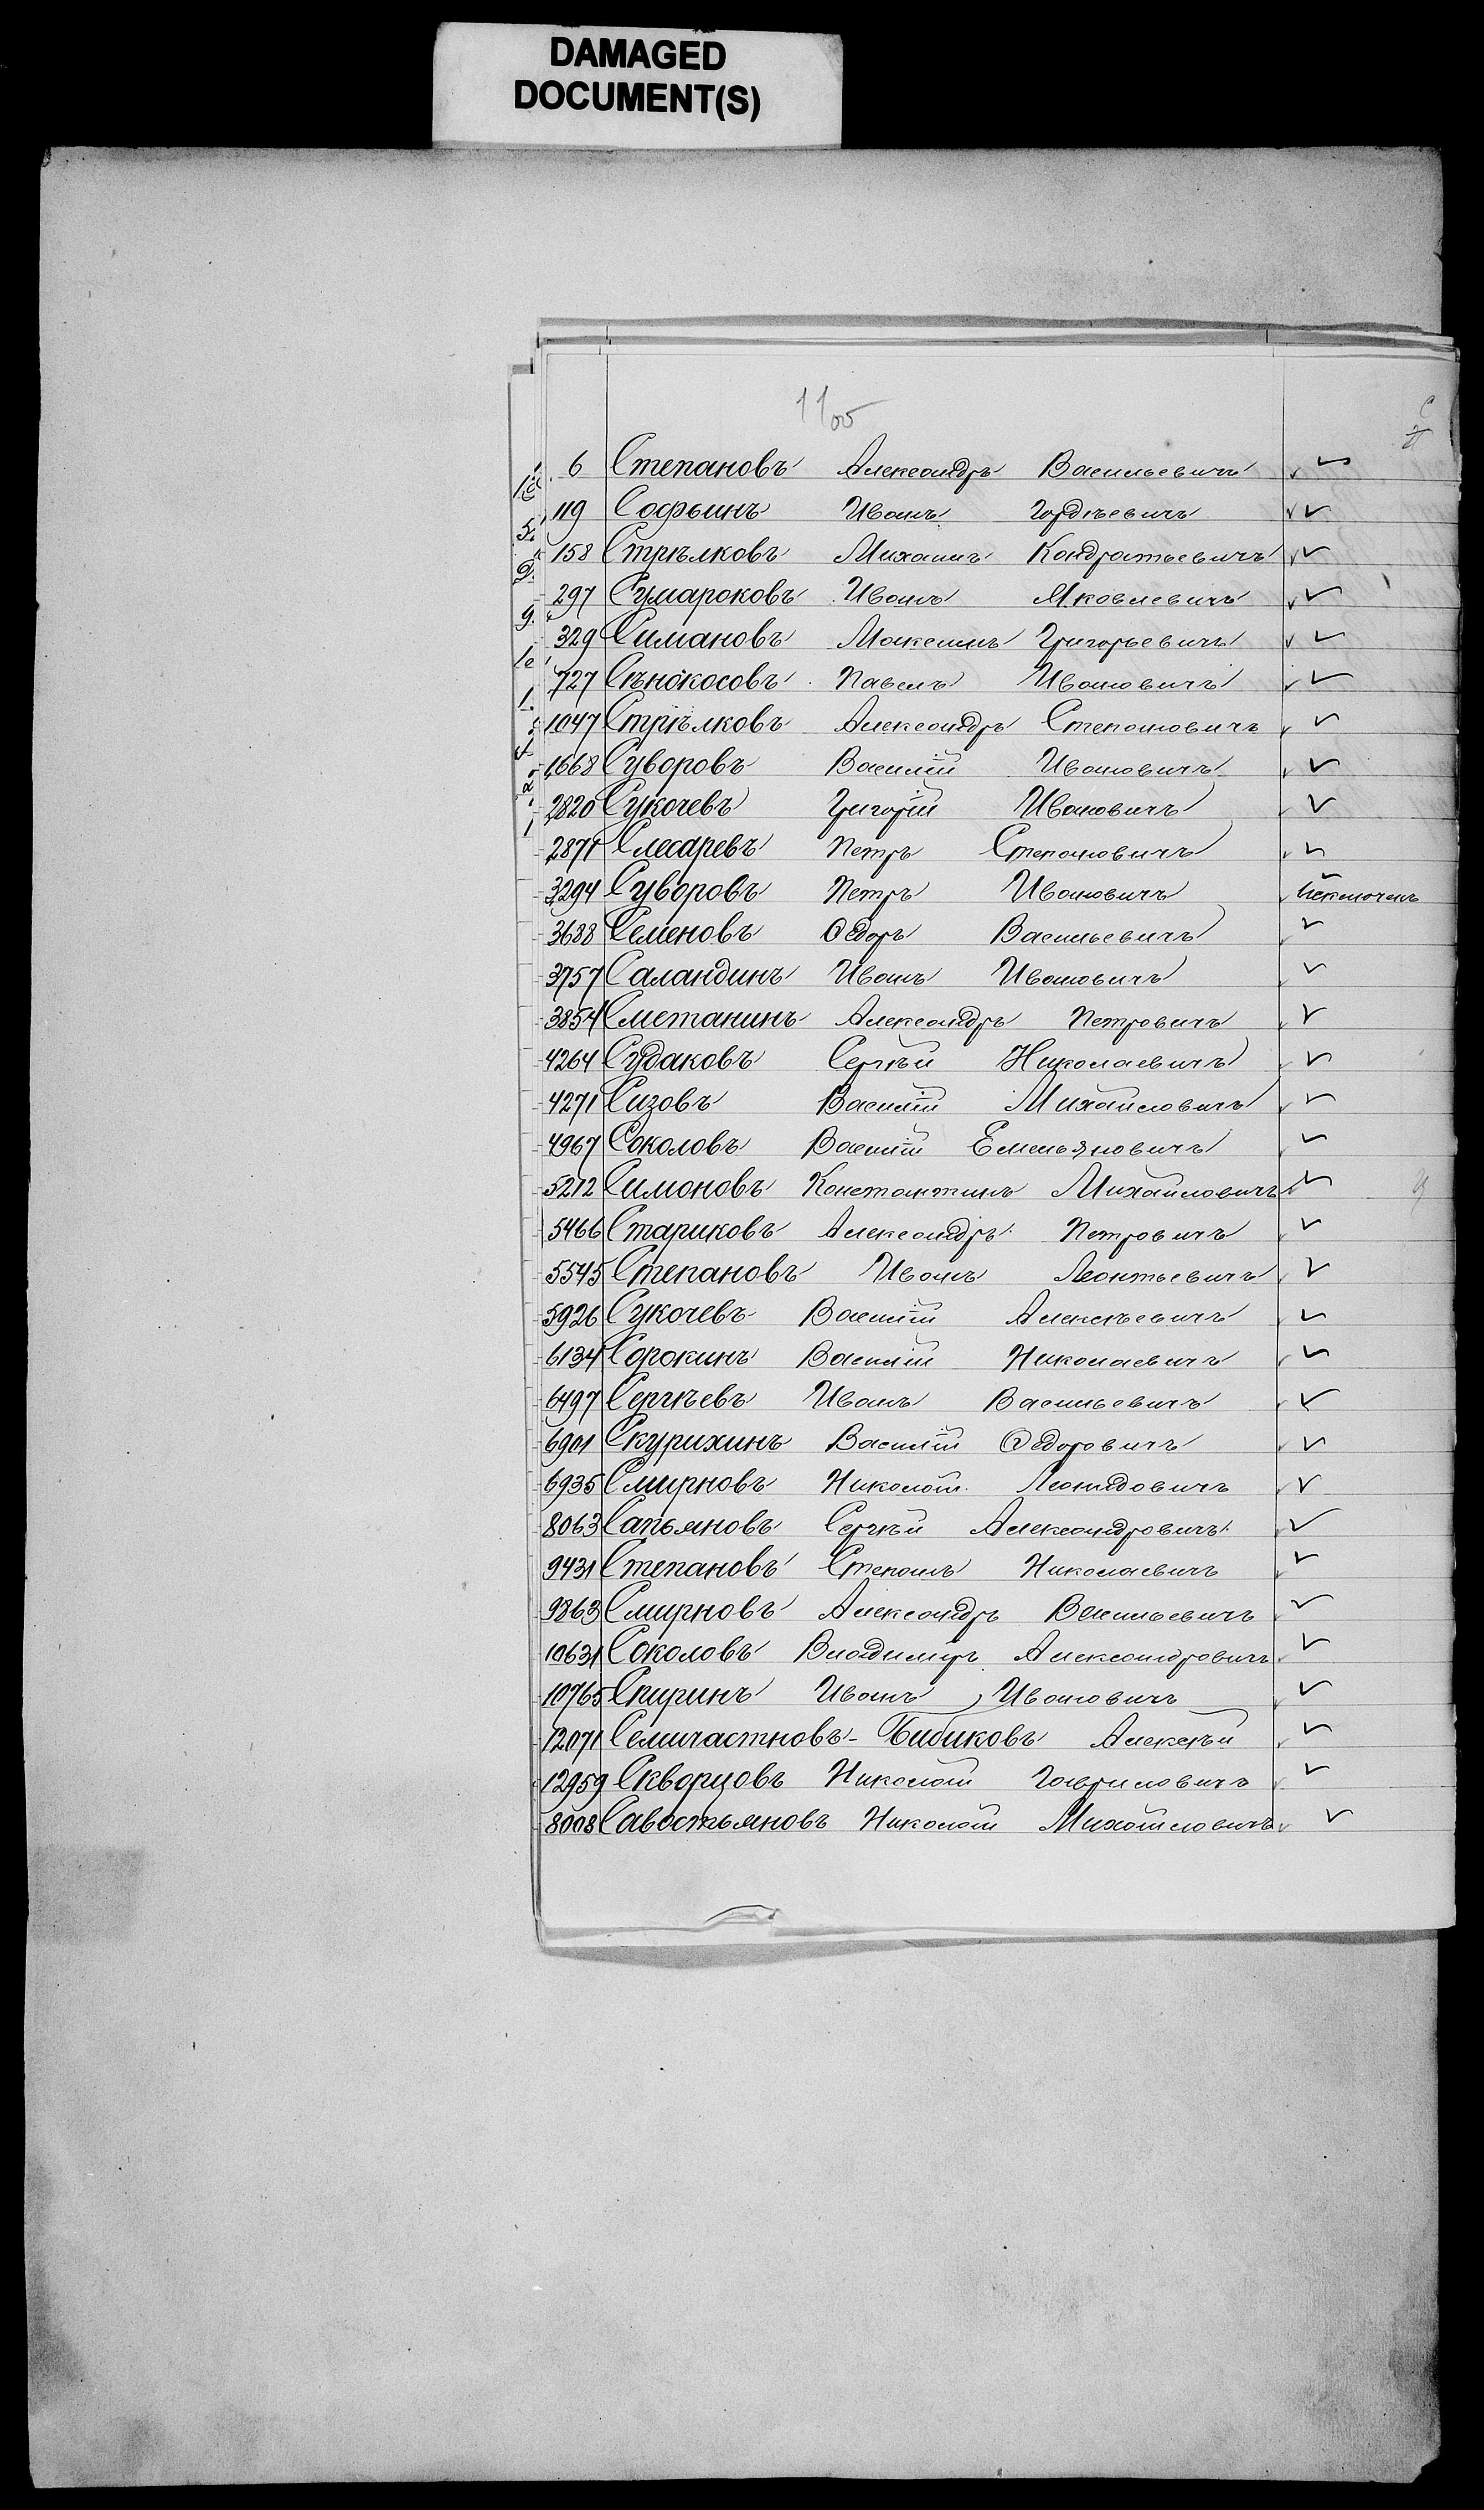 DAMAGED
DOCUMENT(S)
6 Степановъ Александръ Васильевичъ
119 Софьинъ Иванъ Гордѣевичъ
158 Стрѣлковъ Михаилъ Кондратьевичъ
297 Сумароковъ Иванъ Яковлевичъ
329 Симановъ Максимъ Григорьевичъ
727 Сѣнокосовъ Павелъ Ивановичъ
1047 Стрѣлковъ Александръ Степановичъ
1668 Суворовъ Василій Ивановичъ
2820 Сукочевъ Григорій Ивановичъ
2871 Слесаревъ Петръ Степановичъ
3294 Суворовъ Петръ Ивановичъ
3688 Семеновъ Ѳедоръ Васильевичъ
3757 Саландинъ Иванъ Ивановичъ
3854 Сметанинъ Александръ Петровичъ
4264 Судаковъ Сергѣй Николаевичъ
4271 Сизовъ Василій Михайловичъ
4967 Соколовъ Василій Емельяновичъ
5212 Симоновъ Константинъ Михайловичъ
5466 Стариковъ Александръ Петровичъ
5545 Степановъ Иванъ Леонтьевичъ
5926 Сукочевъ Василій Алексѣевичъ
6134 Сорокинъ Василій Николаевичъ
6497 Сергѣевъ Иванъ Васильевичъ
6901 Скурихинъ Василій Ѳедоровичъ
6935 Смирновъ Николай Леонидовичъ
8063 Сапьяновъ Сергѣй Александровичъ
9431 Степановъ Степанъ Николаевичъ
9863 Смирновъ Александръ Васильевичъ
10631 Соколовъ Владимиръ Александровичъ
10765 Спиринъ Иванъ Ивановичъ
12071 Семичастновъ-Бибиковъ Алексѣй
12959 Скворцовъ Николай Гавриловичъ
8008 Савостьяновъ Николай Михайловичъ